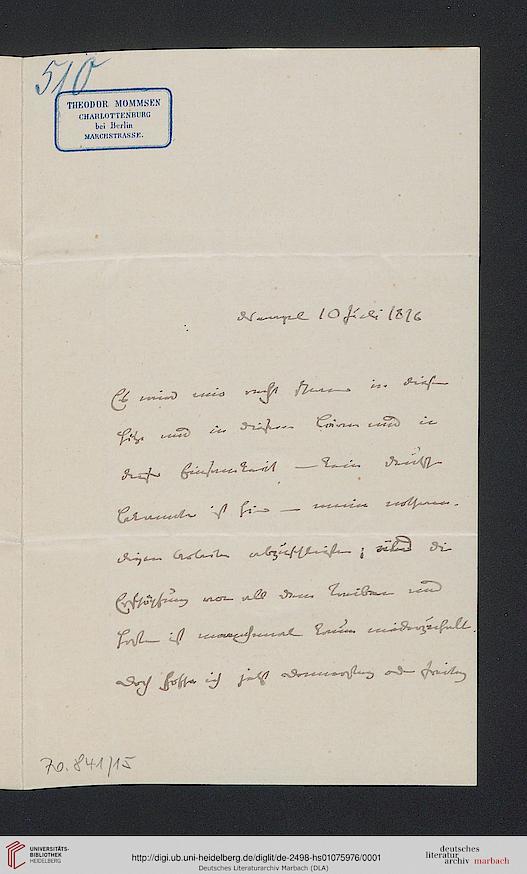 510
THEODOR MOMMSEN
CHARLOTTENBURG
bei Berlin
MARCHSTRASSE.
Neapel 10 Juli 1876
Es wird mir recht schwer in dieser
Hitze und in diesem Lärm und in
dieser Einsamkeit — kein deutscher
Bekannter ist hier — meine nothwen-
digen Arbeiten abzuschließen; und die
Erschöpfung von all dem Treiben und
ist manchmal kaum
Doch hoffe ich jetzt Donnerstag oder Freitag
70.841/15
UNIVERSITÄTS-
BIBLIOTHEK
HEIDELBERG
http://digi.ub.uni-heidelberg.de/diglit/de-2498-hs01075976/0001
Deutsches Literaturarchiv Marbach (DLA)
deutsches
literatur
archiv marbach